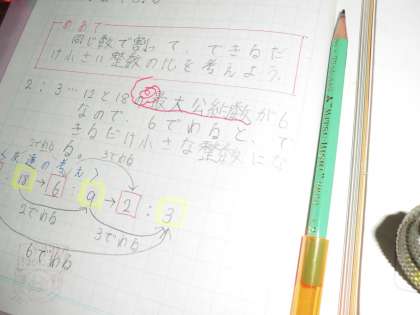 めあて
同じ数で割って、できるだ
け小さい整数の比を考えよう。
2：3…12と18の最大公約数が6
なので、6でわると、で
きるだけ小さな整数にな
る。
2でわる 3でわる
(友達の考え)
18→6：9→2：3
2でわる
3でわる
6でわる